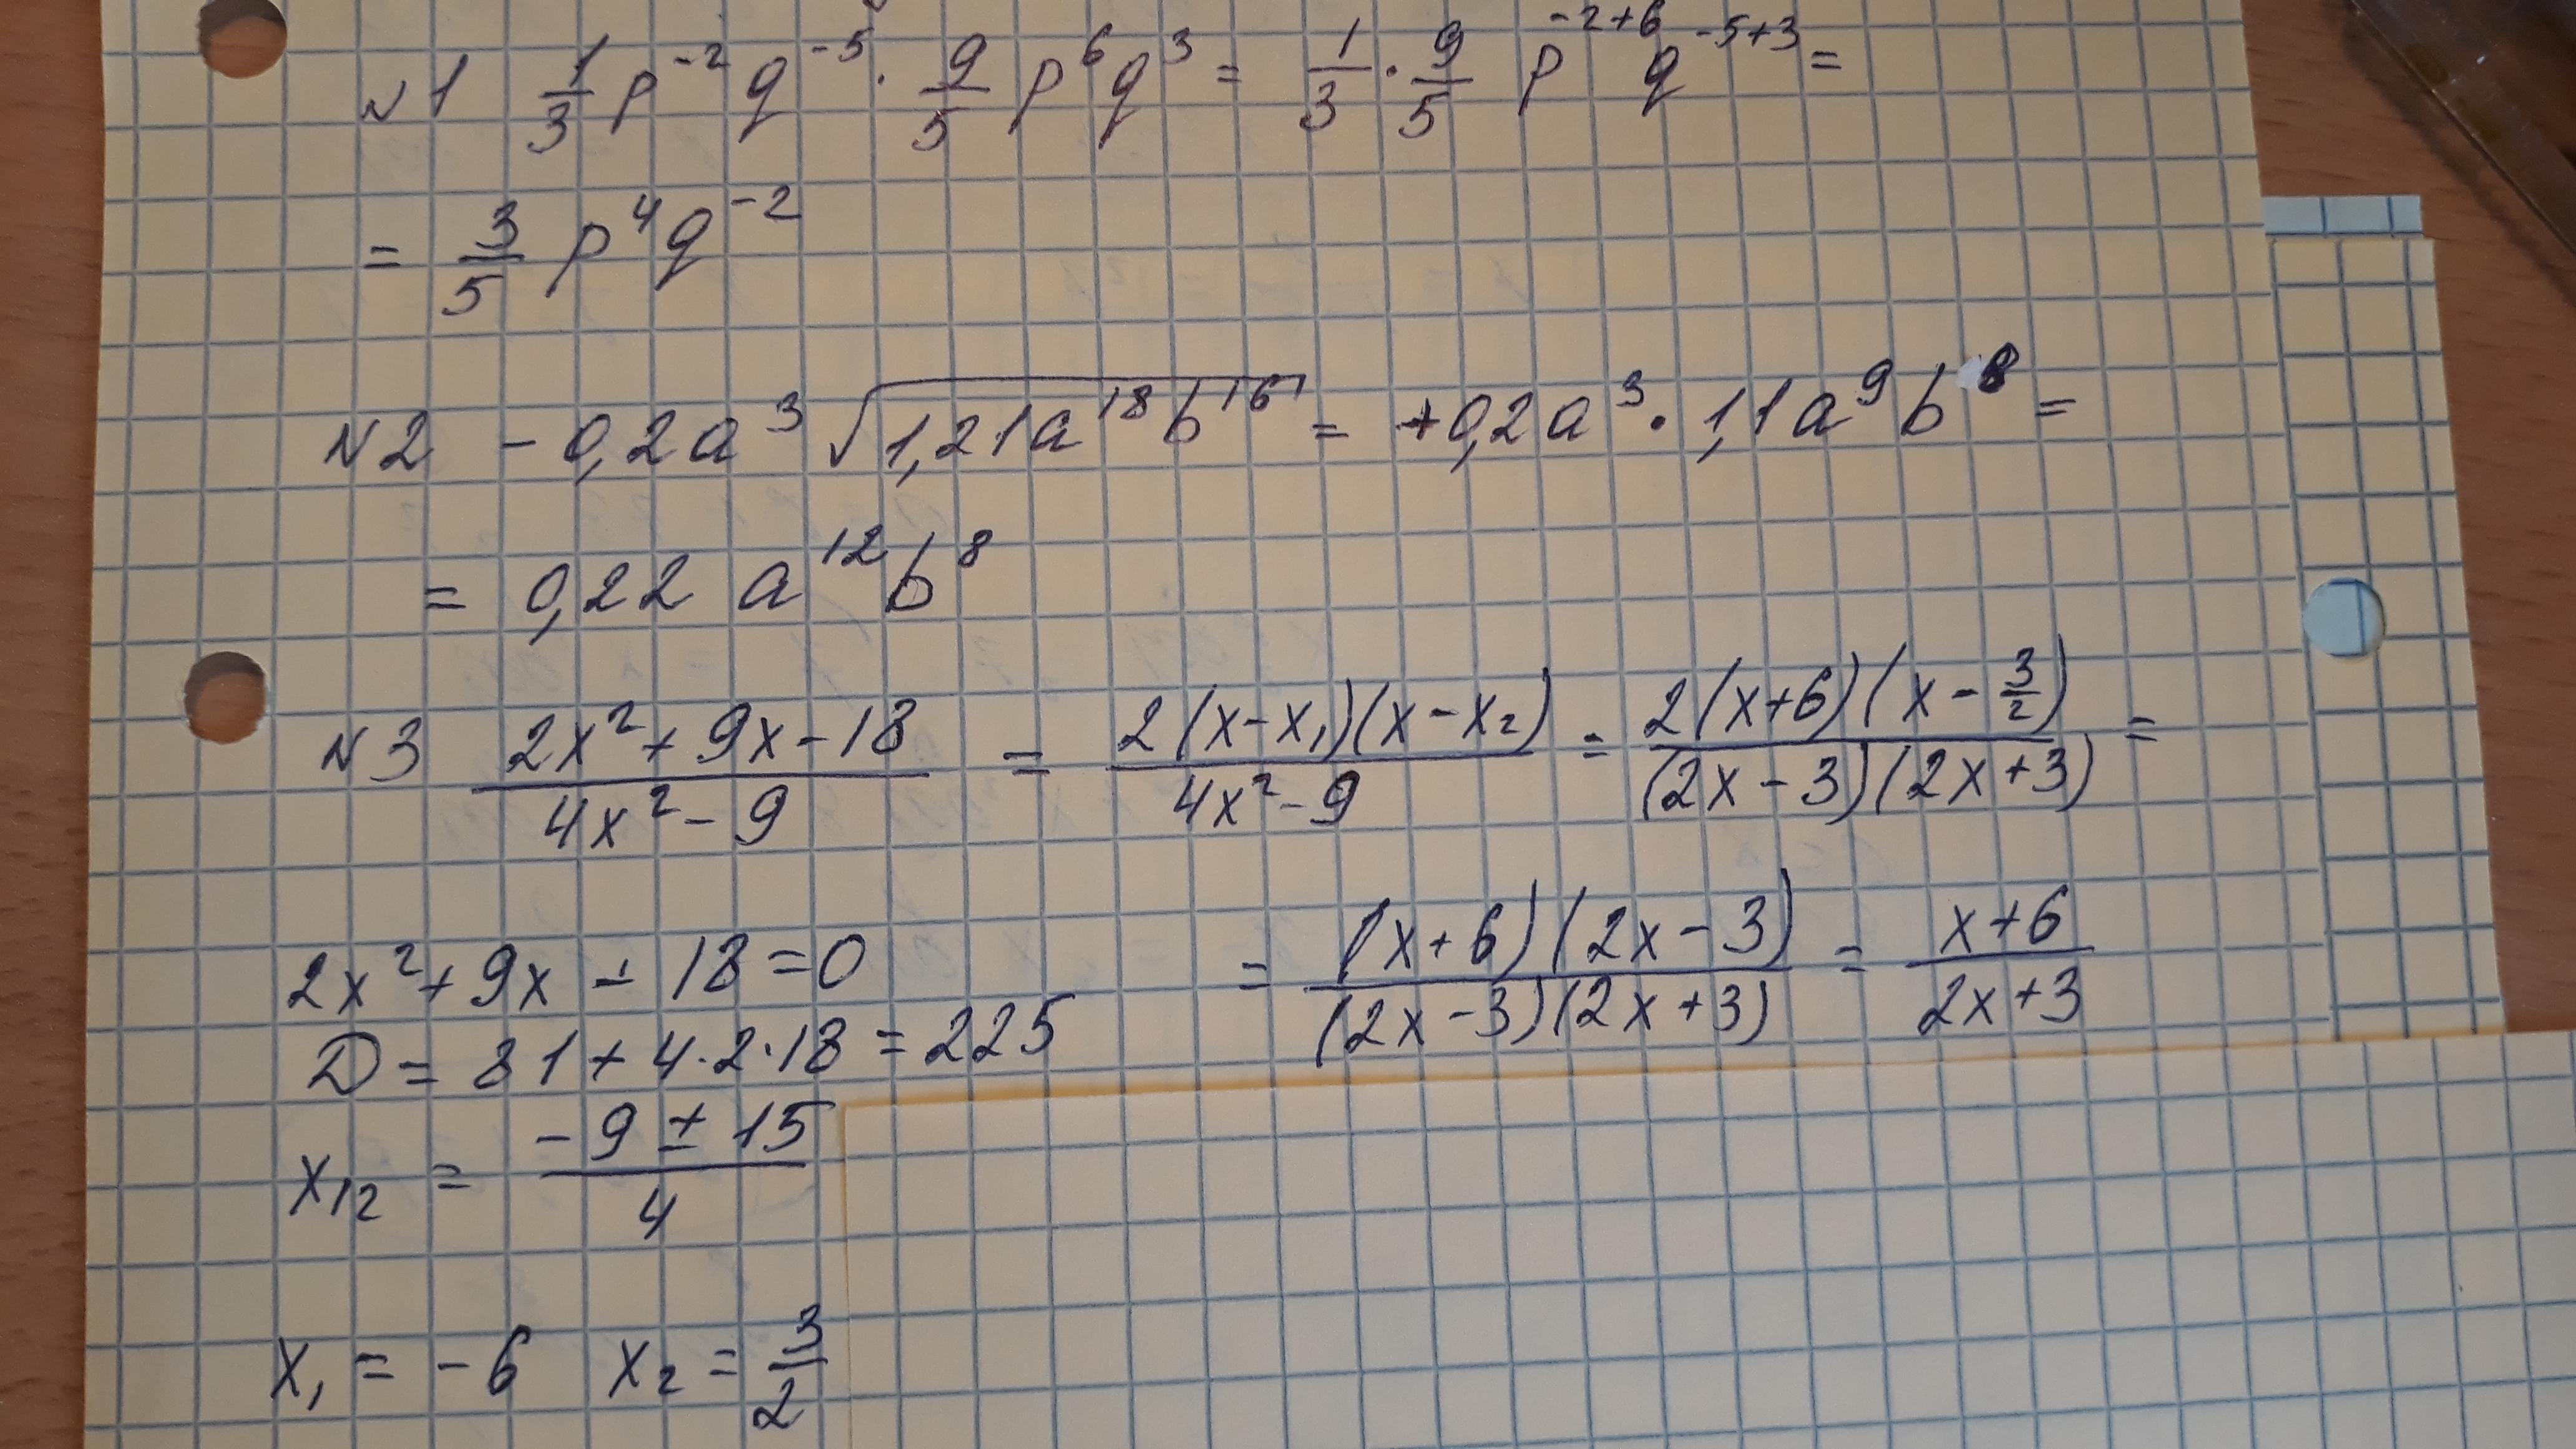 N1 1/3 p^-2 q^-5 · 9/5 p^6 q^3 = 1/3 · 9/5 p^-2+6 q^-5+3 =
= 3/5 p^4 q^-2
N2 - 0,2a^3 √(1,21a^18 b^16) = +0,2a^3 · 1,1a^9 b^8 =
= 0,22 a^12 b^8
N3 (2x^2 + 9x - 18)/(4x^2 - 9) = 2(x-x₁)(x-x₂)/(4x^2 - 9) = 2(x+6)(x - 3/2)/((2x-3)(2x+3)) =
= (x+6)(2x-3)/((2x-3)(2x+3)) = (x+6)/(2x+3)
2x^2 + 9x - 18 = 0
D = 81 + 4·2·18 = 225
x₁₂ = (-9 ± 15)/4
x₁ = -6 x₂ = 3/2